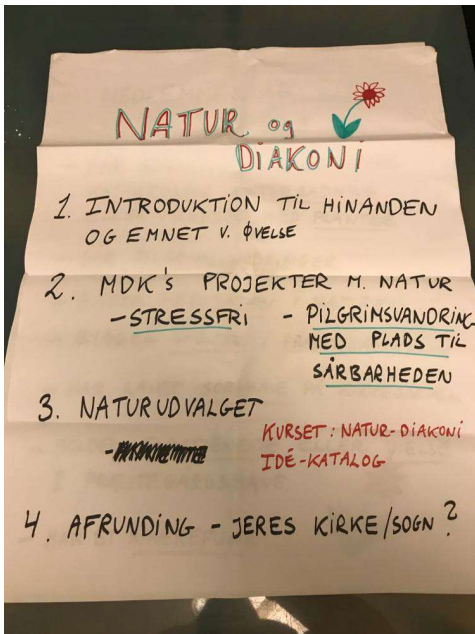 NATUR og
DIAKONI
1. INTRODUKTION TIL HINANDEN
OG EMNET V. ØVELSE
2. MDK's PROJEKTER M. NATUR
- STRESSFRI - PILGRIMSVANDRING
MED PLADS TIL
SÅRBARHEDEN
3. NATURUDVALGET
-
KURSET: NATUR-DIAKONI
IDÉ-KATALOG
4. AFRUNDING - JERES KIRKE/SOGN?